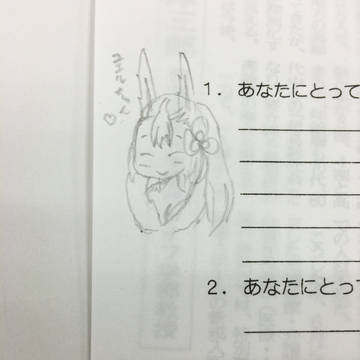 ユエルちゃん
1. あなたにとって
2. あなたにとって